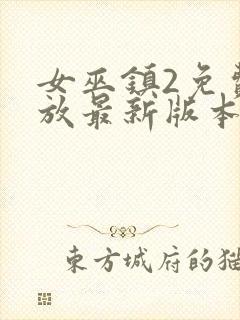 女巫鎮2免費
放最新版本
東方城府的猫